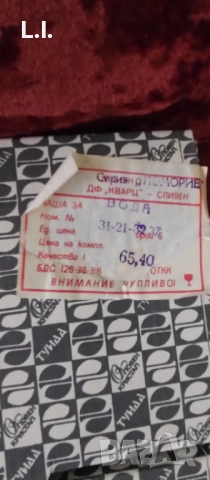 L.I.
Серия „ПОМОРИЕ“
ДФ „КВАРЦ“ – СЛИВЕН
ЧАША ЗА ВОДА
Ном. № 31-21-
Ед. цена Брой 6
Цена на компл.
Качество I 65,40
БДС 126 38-88 ОТКК
ВНИМАНИЕ ЧУПЛИВО!
ТУНДА
ТУНДА
ТУНДА
bazar